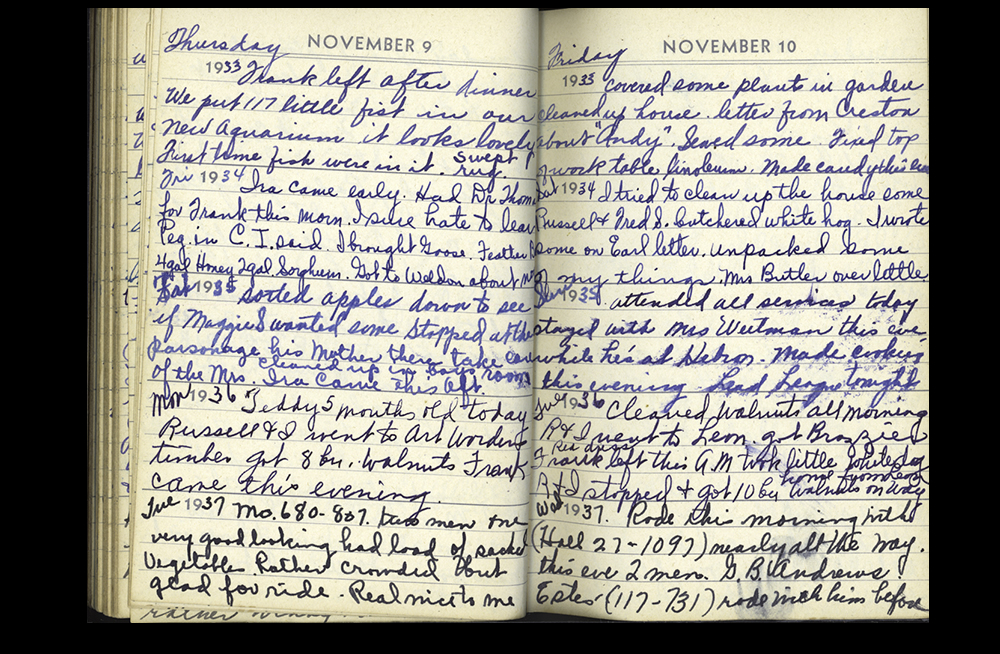 Thursday NOVEMBER 9
1933 Frank left after dinner
We put 117 little fist in our
New Aquarium it looks lovely
First time fish were in it. Swept
rug.
Fri 1934 Ira came early. Had Dr Thom
for Frank this morn. I sure hate to leav
Peg. in C. I. said. I brought Goose. Feather
4 gal Honey 2 gal Sorghum. Got to Weldon about
Sat 1935 sorted apples down to see
if Maggie S wanted some Stopped at the
Parsonage his Mother there take care
cleaned up in Boys room
of the Mrs. Ira came this aft
Mon 1936 Teddy 5 months old today
Russell & I went to Art Wordens
timber got 8 bu. Walnuts Frank
came this evening.
Tue 1937 Mo. 680-807. two men one
very good looking had load of sacked
Vegetables Rather crowded but
glad for ride. Real nice to me
rather
Friday NOVEMBER 10
1933 covered some plants in garden
cleaned up house. letter from Creston
about "Andy". Sewed some. Fixed top
of work table linoleum. Made candy this eve
Sat 1934 I tried to clean up the house some
Russell & Fred S. butchered white hog. I wrote
some on Earl letter. Unpacked some
of my things. Mrs Butler over little
Sun 1935. attended all services today
stayed with Mrs Weetman this eve
while he's at Hebron. Made cookies
this evening Lead League tonight
Tue 1936 Cleaned Walnuts all morning
R & I went to Leon. got Brazzier
Frank left this A.M took little White dog
home
R & I stopped & got 10 bu Walnuts on way
Wed 1937. Rode this morning with
(Hall 27-1097) nearly all the way.
this eve 2 men. G. B. Andrews
Estes (117-731) rode with him before